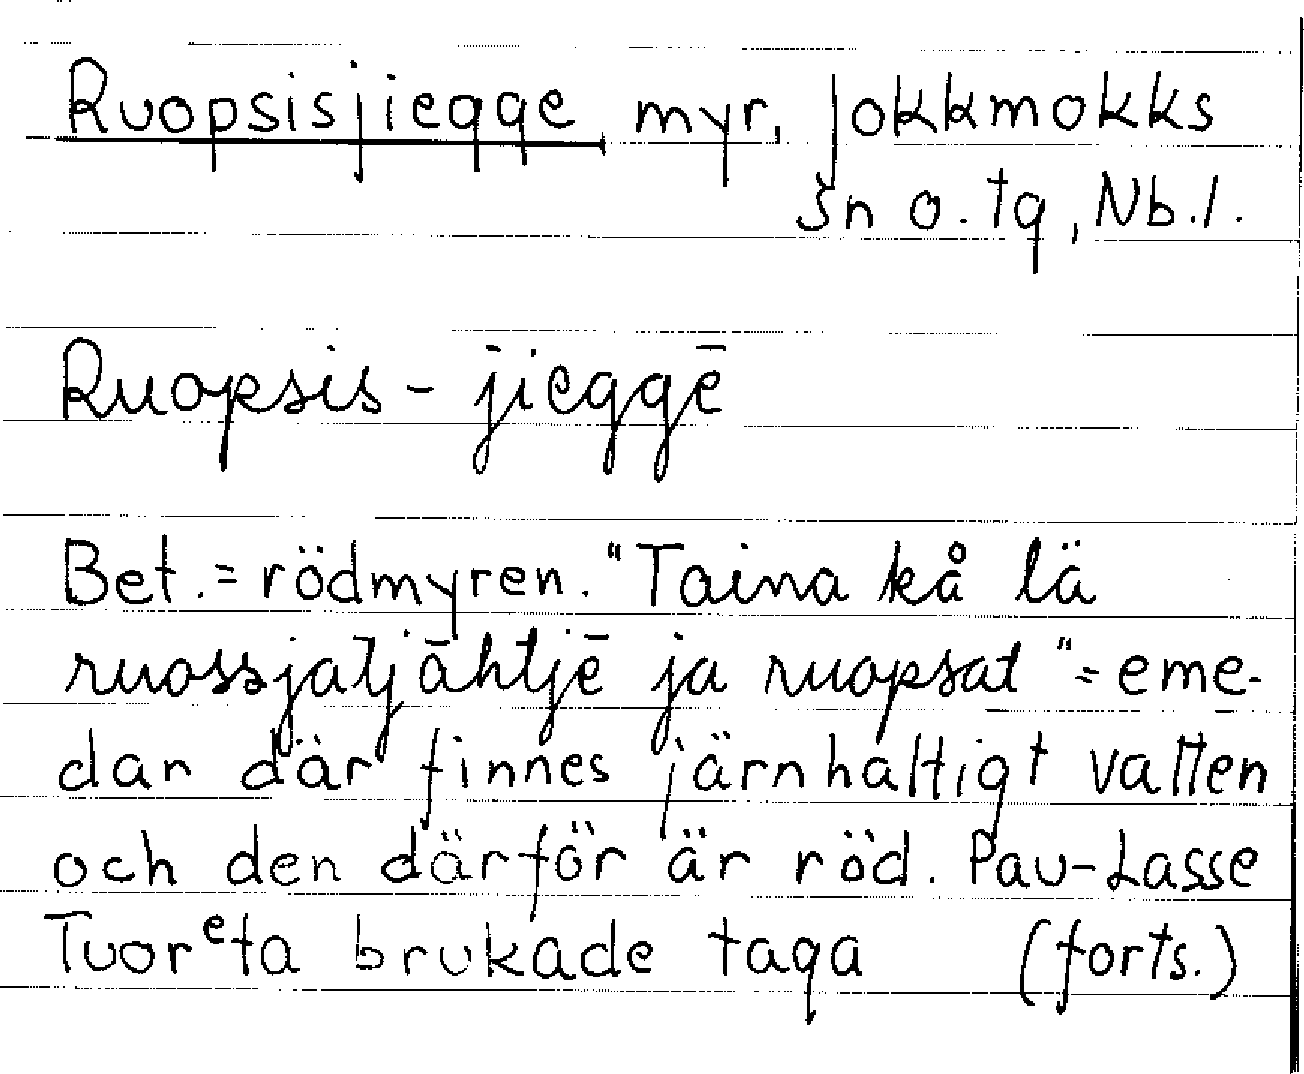 Ruopsisjiegge myr, Jokkmokks
sn o. tg, Nb.l.
Ruopsis-jieggē
Bet.= rödmyren. "Taina kå lä
ruossjatjāhtjē ja ruopsat"= eme-
dan där finnes järnhaltigt vatten
och den därför är röd. Pav-Lasse
Tuorᵉta brukade taga (forts.)